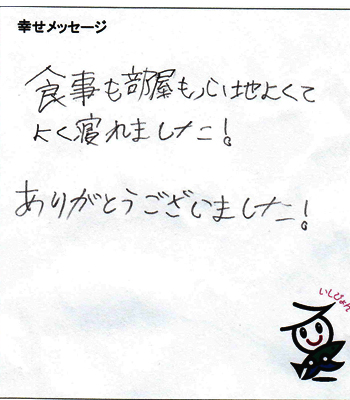 幸せメッセージ
食事も部屋も心地よくて
よく寝れました！
ありがとうございました！
いしぴょん